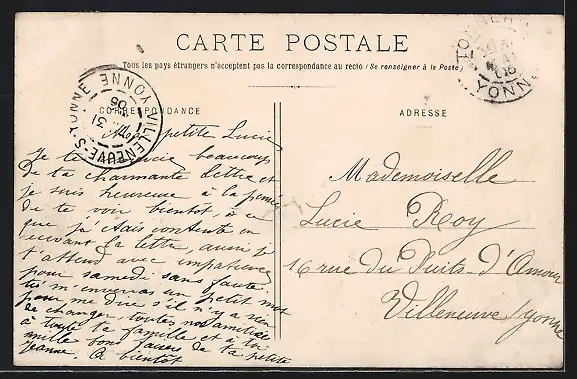 CARTE POSTALE
Tous les pays étrangers n'acceptent pas la correspondance au recto (Se renseigner à la Poste)
CORRESPONDANCE
ADRESSE
VILLENEUVE-S-YONNE YONNE
31
06
TONNERRE
YONNE
petite Lucie
Je te remercie beaucoup
De ta charmante lettre et
je suis heureuse à la pensée
de te voir bientôt, à ce
que j'étais contente en
recevant ta lettre, aussi je
t'attend avec impatience
pour samedi sans faute
tu m'enverras un petit mot
pour me dire s'il n'y a rien
de changer, toutes nos amitiés
à toute la famille et à toi
mille bons baisers de ta petite
Jeanne. A bientôt
Mademoiselle
Lucie Roy
16 rue du Puits-d'Amour
Villeneuve s/yonne